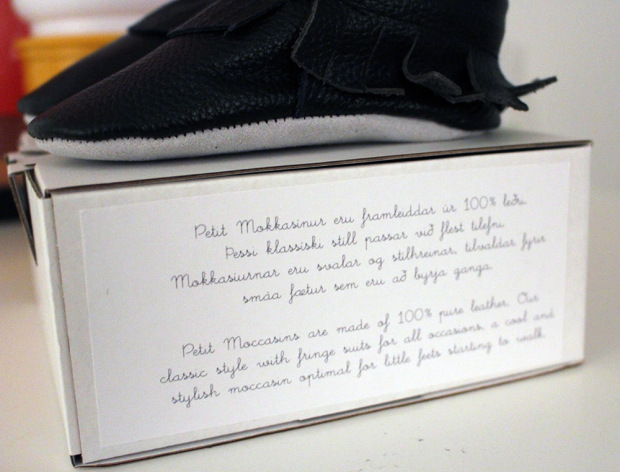 Petit Mokkasínur eru framleiddar úr 100% leðri.
Þessi klassíski stíll passar við flest tilefni.
Mokkasíurnar eru svalar og stílhreinar, tilvaldar fyrir
smáa fætur sem eru að byrja ganga.
Petit Moccasins are made of 100% pure leather. Our
classic style with fringe suits for all occasions, a cool and
stylish moccasin optimal for little feets starting to walk.